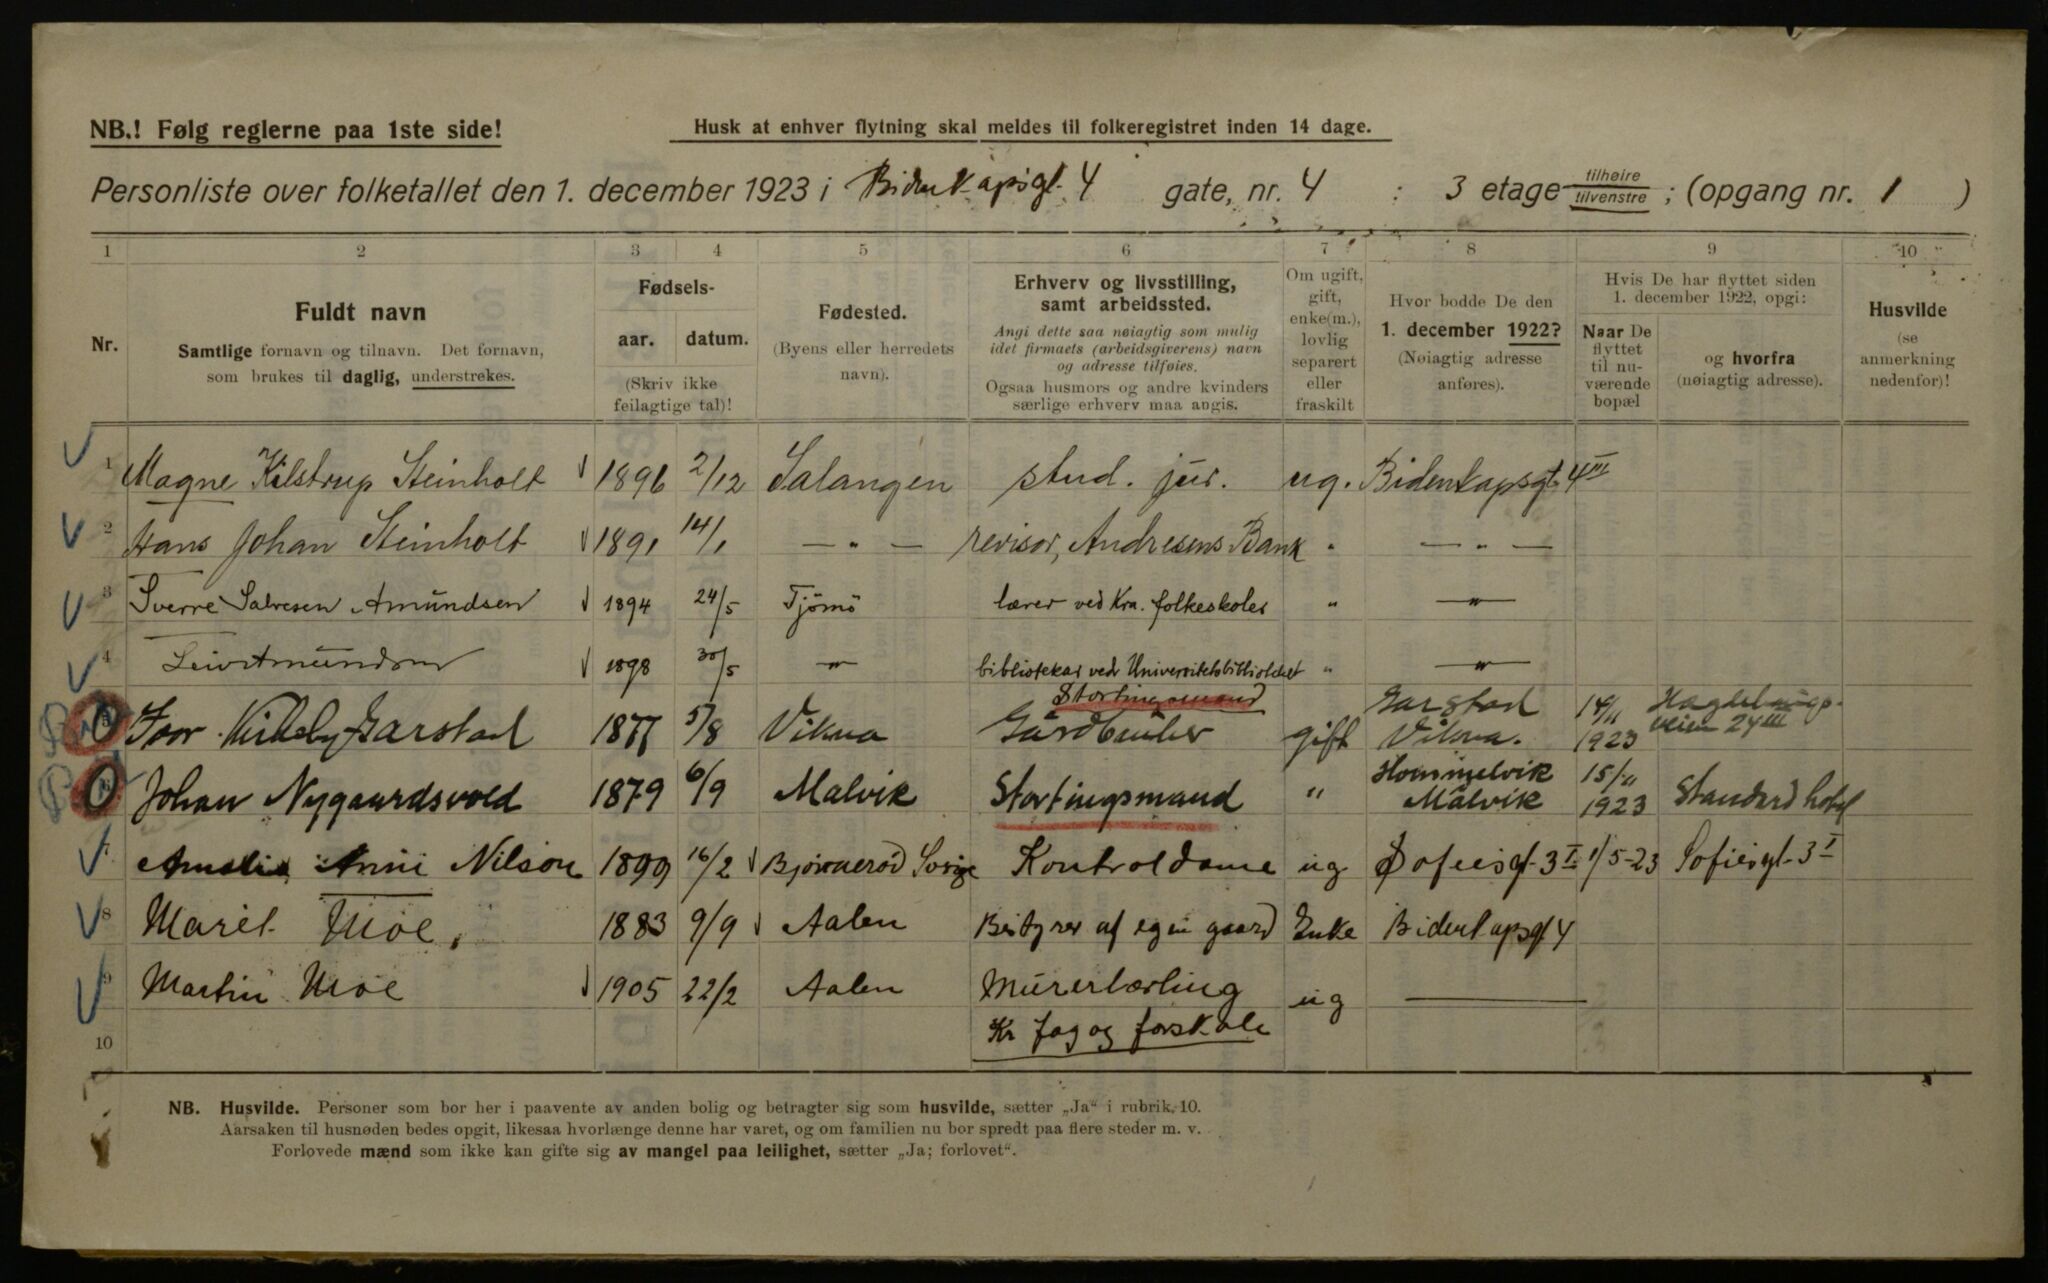 NB.! Følg reglerne paa 1ste side!
Husk at enhver flytning skal meldes til folkeregistret inden 14 dage.
Personliste over folketallet den 1. december 1923 i Bidenkapsgt. 4 gate, nr. 4 : 3 etage tilhøire tilvenstre ; (opgang nr. 1 )
1 2 3 4 5 6 7 8 9 10
Nr.
Fuldt navn
Samtlige fornavn og tilnavn. Det fornavn,
som brukes til daglig, understrekes.
Fødsels-
aar. datum.
(Skriv ikke
feilagtige tal)!
Fødested.
(Byens eller herredets
navn).
Erhverv og livsstilling,
samt arbeidssted.
Angi dette saa nøiagtig som mulig
idet firmaets (arbeidsgiverens) navn
og adresse tilføies.
Ogsaa husmors og andre kvinders
særlige erhverv maa angis.
Om ugift,
gift,
enke(m.),
lovlig
separert
eller
fraskilt
Hvor bodde De den
1. december 1922?
(Nøiagtig adresse
anføres).
Hvis De har flyttet siden
1. december 1922, opgi:
Naar De
flyttet
til nu-
værende
bopæl
og hvorfra
(nøiagtig adresse).
Husvilde
(se
anmerkning
nedenfor)!
1 Magne Kilstrup Steinholt 1896 2/12 Salangen stud. jur. ug. Bidenkapsgt. 4 III
2 Hans Johan Steinholt 1891 14/1 — " — revisor, Andresens Bank " — " —
3 Sverre Salvesen Amundsen 1894 24/5 Tjömö lærer ved Kra. folkeskoler " — " —
4 Leiv Amundsen 1898 30/5 — " — bibliotekar ved Universitetsbiblioteket " — " —
Stortingsmand
5 Ivar Kirkeby Garstad 1877 5/8 Vikna Gårdbruker gift Garstad Vikna. 14/11 1923 Haglebougs- veien 24 III
6 Johan Nygaardsvold 1879 6/9 Malvik Stortingsmand " Hommelvik Malvik 15/11 1923 Standard hotel
7 Amalia Anni Nilson 1899 16/2 Bjørnerød Sverige Kontroldame ug Sofiesgt. 3 I 1/5-23 Sofiesgt. 3 I
8 Marit Moe, 1883 9/9 Aalen Bestyrer af egen gaard Enke Bidenkapsgt 4
9 Martin Moe 1905 22/2 Aalen Murerlærling ug ———
10 Kr fag og forskole
NB. Husvilde. Personer som bor her i paavente av anden bolig og betragter sig som husvilde, sætter „Ja“ i rubrik 10.
Aarsaken til husnøden bedes opgit, likesaa hvorlænge denne har varet, og om familien nu bor spredt paa flere steder m. v.
Forlovede mænd som ikke kan gifte sig av mangel paa leilighet, sætter „Ja; forlovet“.